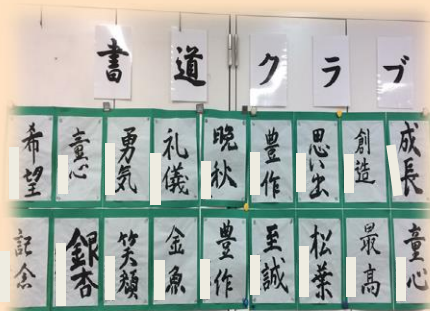 書道クラブ
希望
童心
勇気
礼儀
晩秋
豊作
思い出
創造
成長
記念
銀杏
笑顔
金魚
豊作
至誠
松葉
最高
童心